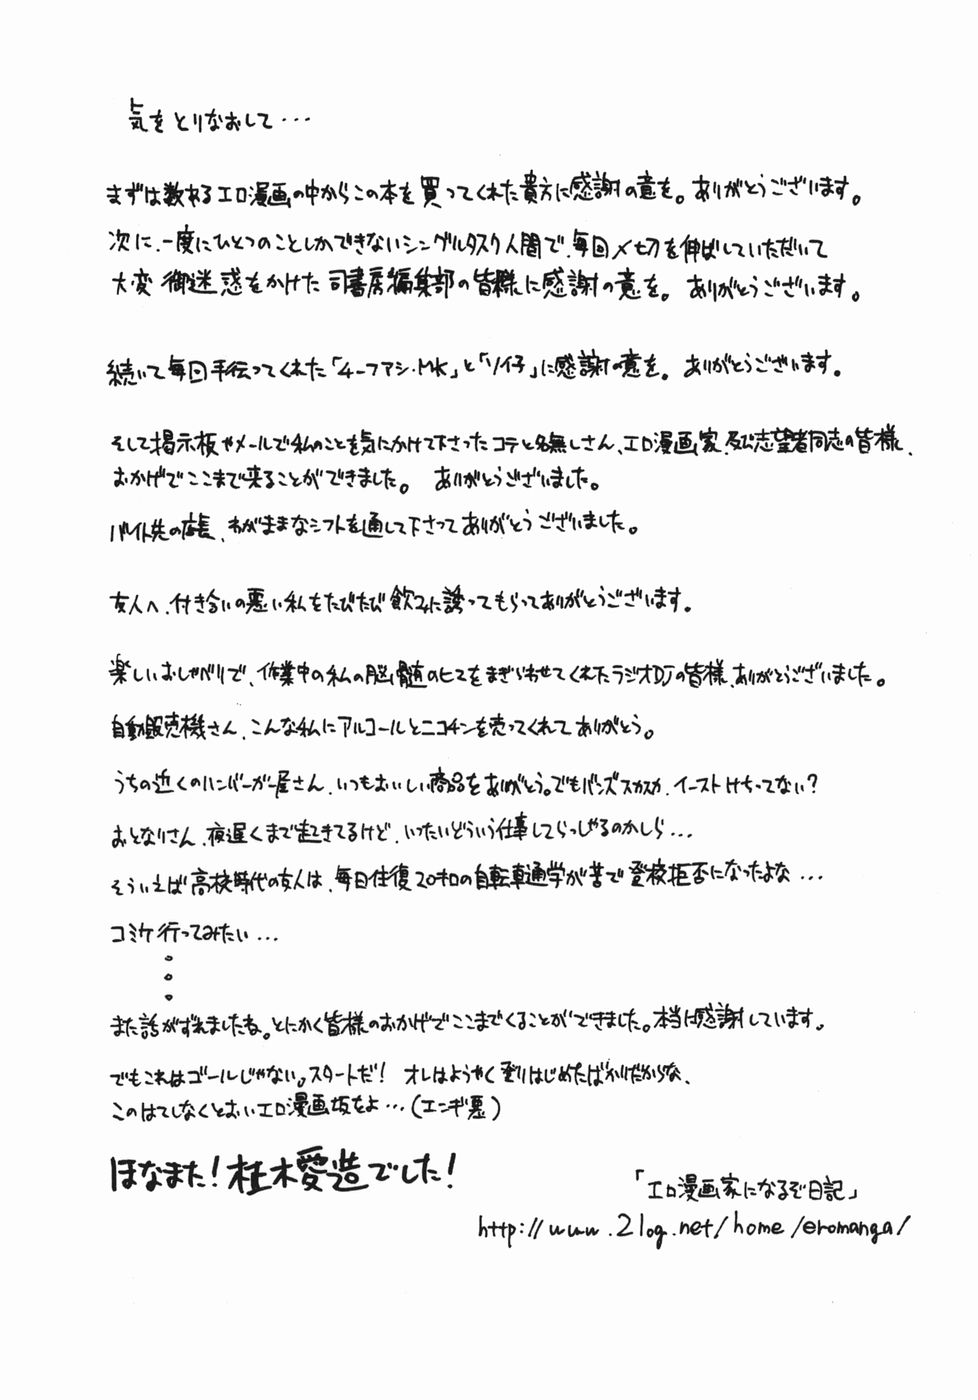 気をとりなおして・・・
まずは数あるエロ漫画の中からこの本を買ってくれた貴方に感謝の意を。ありがとうございます。
次に、一度にひとつのことしかできないシングルタスク人間で、毎回〆切を伸ばしていただいて
大変御迷惑をかけた司書房編集部の皆様に感謝の意を。ありがとうございます。
続いて毎回手伝ってくれた「4-ファシ・MK」と「ソ仔」に感謝の意を。ありがとうございます。
そして掲示板やメールで私のことを気にかけて下さったコテと名無しさん、エロ漫画家、及び志望者同志の皆様、
おかげでここまで来ることができました。ありがとうございました。
バイト先の店長、わがままなシフトを通して下さってありがとうございました。
友人へ、付き合いの悪い私をたびたび飲みに誘ってもらってありがとうございます。
楽しいおしゃべりで、作業中の私の脳髄のヒマをまぎらわせてくれたラジオDJの皆様、ありがとうございました。
自動販売機さん、こんな私にアルコールとニコチンを売ってくれてありがとう。
うちの近くのハンバーガー屋さん、いつもおいしい商品をありがとう。でもバンズスカスカ、イーストけちってない?
おとなりさん、夜遅くまで起きてるけど、いったいどういう仕事してらっしゃるのかしら・・・
そういえば高校時代の友人は、毎日往復20キロの自転車通学が苦で登校拒否になったよな・・・
コミケ行ってみたい・・・
。
。
。
また話がずれましたね。とにかく皆様のおかげでここまでくることができました。本当に感謝しています。
でもこれはゴールじゃない。スタートだ! オレはようやく登りはじめたばかりだからな、
このはてしなくとおいエロ漫画坂をよ・・・(エンギ悪)
ほなまた!桂木愛造でした!
「エロ漫画家になるぞ日記」
http://www.2log.net/home/eromanga/